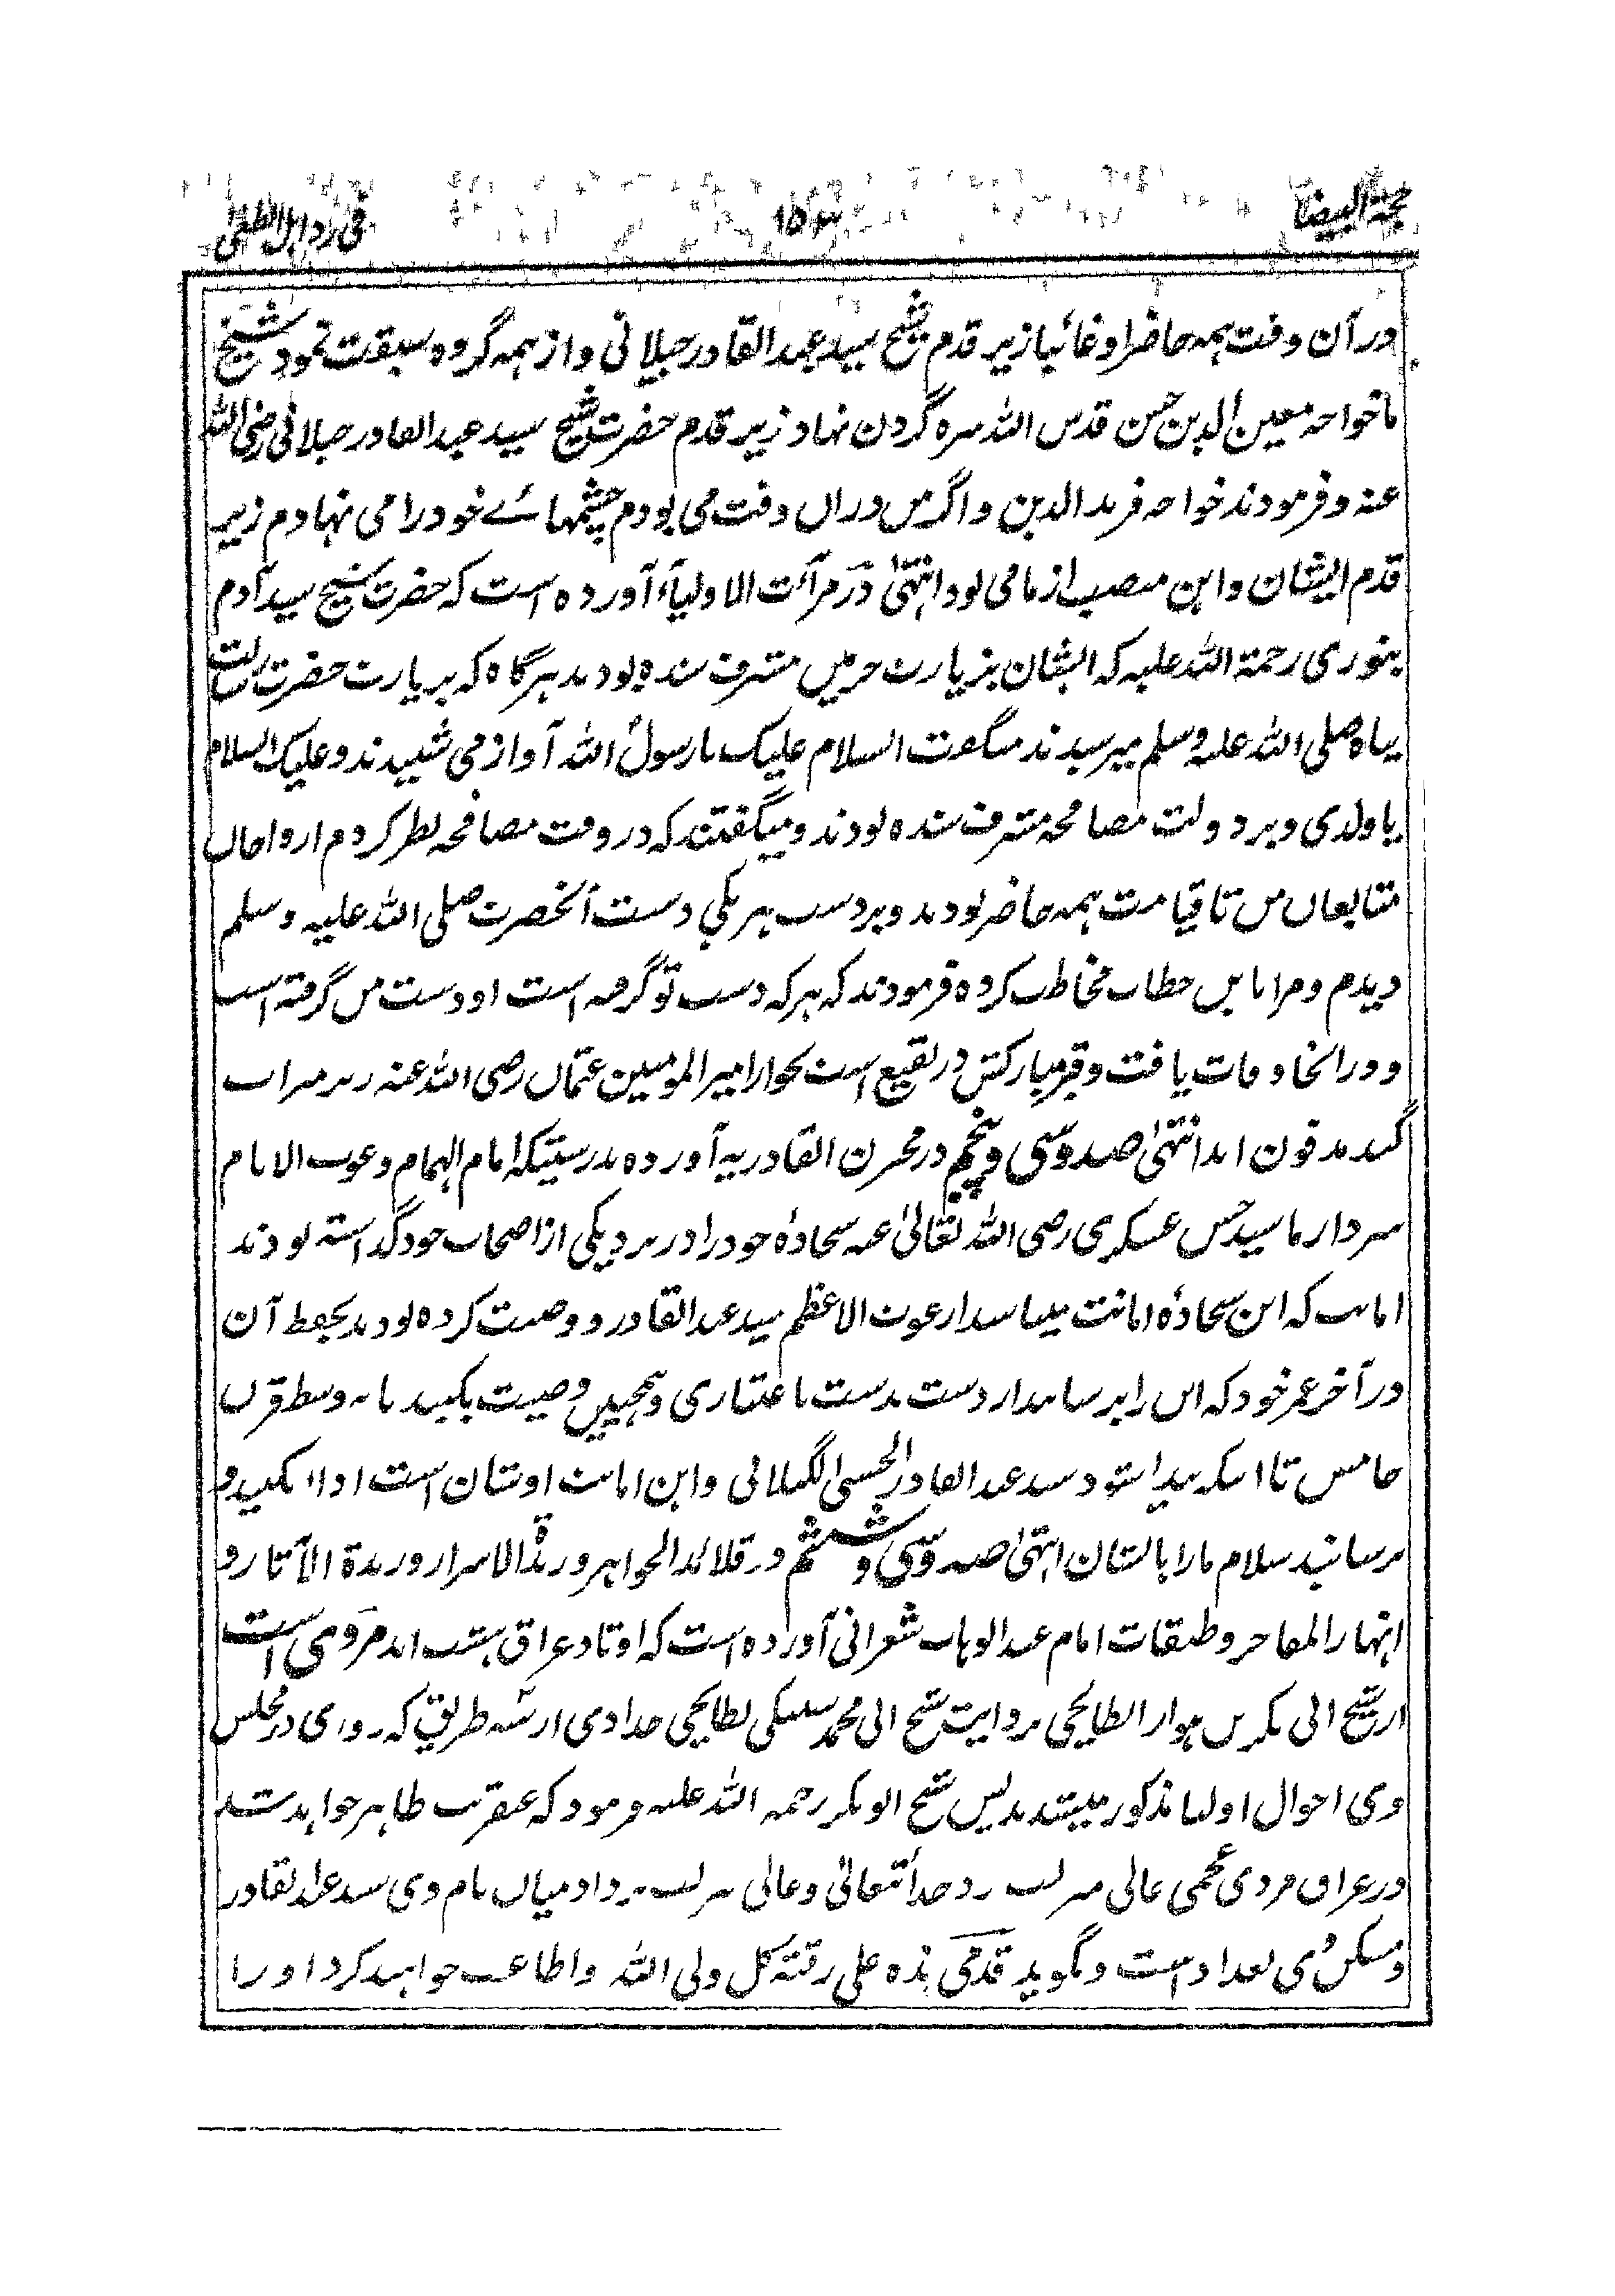 حجة البیضا ۱۵۳ فی رد اہل الطغی
در آن وقت ہمہ حاضرا و غائبا زیر قدم شیخ سید عبد القادر جیلانی و از ہمہ گروہ سبقت نمود شیخ
ما خواجہ معین الدین حسن قدس اللہ سرہ گردن نہاد زیر قدم حضرت شیخ سید عبد القادر جیلانی رضی اللہ
عنہ و فرمودند خواجہ فرید الدین و اگر من دران وقت می بودم چشمہائے خود را می نہادم زیر
قدم ایشان و این منصب از ما می بود انتہیٰ در مرآت الاولیآء آوردہ است کہ حضرت شیخ سید آدم
بنوری رحمۃ اللہ علیہ کہ ایشان بزیارت حرمین مشرف شدہ بودند ہرگاہ کہ بزیارت حضرت رسالت
پناہ صلی اللہ علیہ وسلم میرسیدند میگفت السلام علیک یا رسول اللہ آواز می شنیدند و علیک السلام
یا ولدی و بر دولت مصافحہ مشرف شدہ بودند و میگفتند کہ در وقت مصافحہ نظر کردم ارواحان
متابعان من تا قیامت ہمہ حاضر بودند و بر دست ہر یکی دست آنحضرت صلی اللہ علیہ وسلم
دیدم و مرا باین خطاب مخاطب کردہ فرمودند کہ ہر کہ دست تو گرفتہ است او دست من گرفتہ است
و در انجا وفات یافت و قبر مبارکش در بقیع است بجوار امیر المومنین عثمان رضی اللہ عنہ زیر میزاب
گنبد مدفون اند انتہیٰ صد و سی و پنجم در مخزن القادریہ آوردہ بدرستیکہ امام الہمام و غوث الانام
سردار ما سید حسن عسکری رضی اللہ تعالیٰ عنہ سجادۂ خود را در نزد یکی از اصحاب خود گذاشتہ بودند
امانت کہ این سجادۂ امانت غوث الاعظم سید عبد القادر و وصیت کردہ بودند بحفظ آن
در آخر عمر خود کہ این را برسانید از دست بدست باعتباری و ہمچنین وصیت بکنید تا بہ وسط قرن
خامس تا اینکہ پیدا شود سید عبد القادر الحسنی الگیلانی و این امانت اوشان است ادا بکنید و
برسانید سلام ما را بایشان انتہیٰ صد و سی و ششم در قلائد الجواہر و زبدۃ الاسرار و زبدۃ الآثار و
انہار المفاخر و طبقات امام عبد الوہاب شعرانی آوردہ است کہ اوتاد عراق ہشت اند مروی است
از شیخ ابی بکر بن ہوار البطائحی بروایت شیخ ابی محمد شنبکی بطائحی حدادی از سہ طریق کہ روزی در مجلس
وی احوال اولیا مذکور میشد پس شیخ ابوبکر رحمہ اللہ علیہ فرمود کہ عنقریب ظاہر خواہد شد
در عراق مردی عجمی عالی مرتبت نزد خدا تعالیٰ و عالی مرتبت نزد آدمیان نام وی سید عبد القادر
و مسکن وی بغداد است و بگوید قدمی ہذہ علی رقبۃ کل ولی اللہ و اطاعت خواہند کرد او را